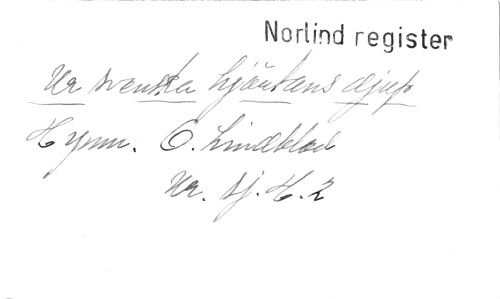 Norlind register
Ur svenska hjärtans djup
Hymn. O. Lindblad
Ur. Sj. H. 2